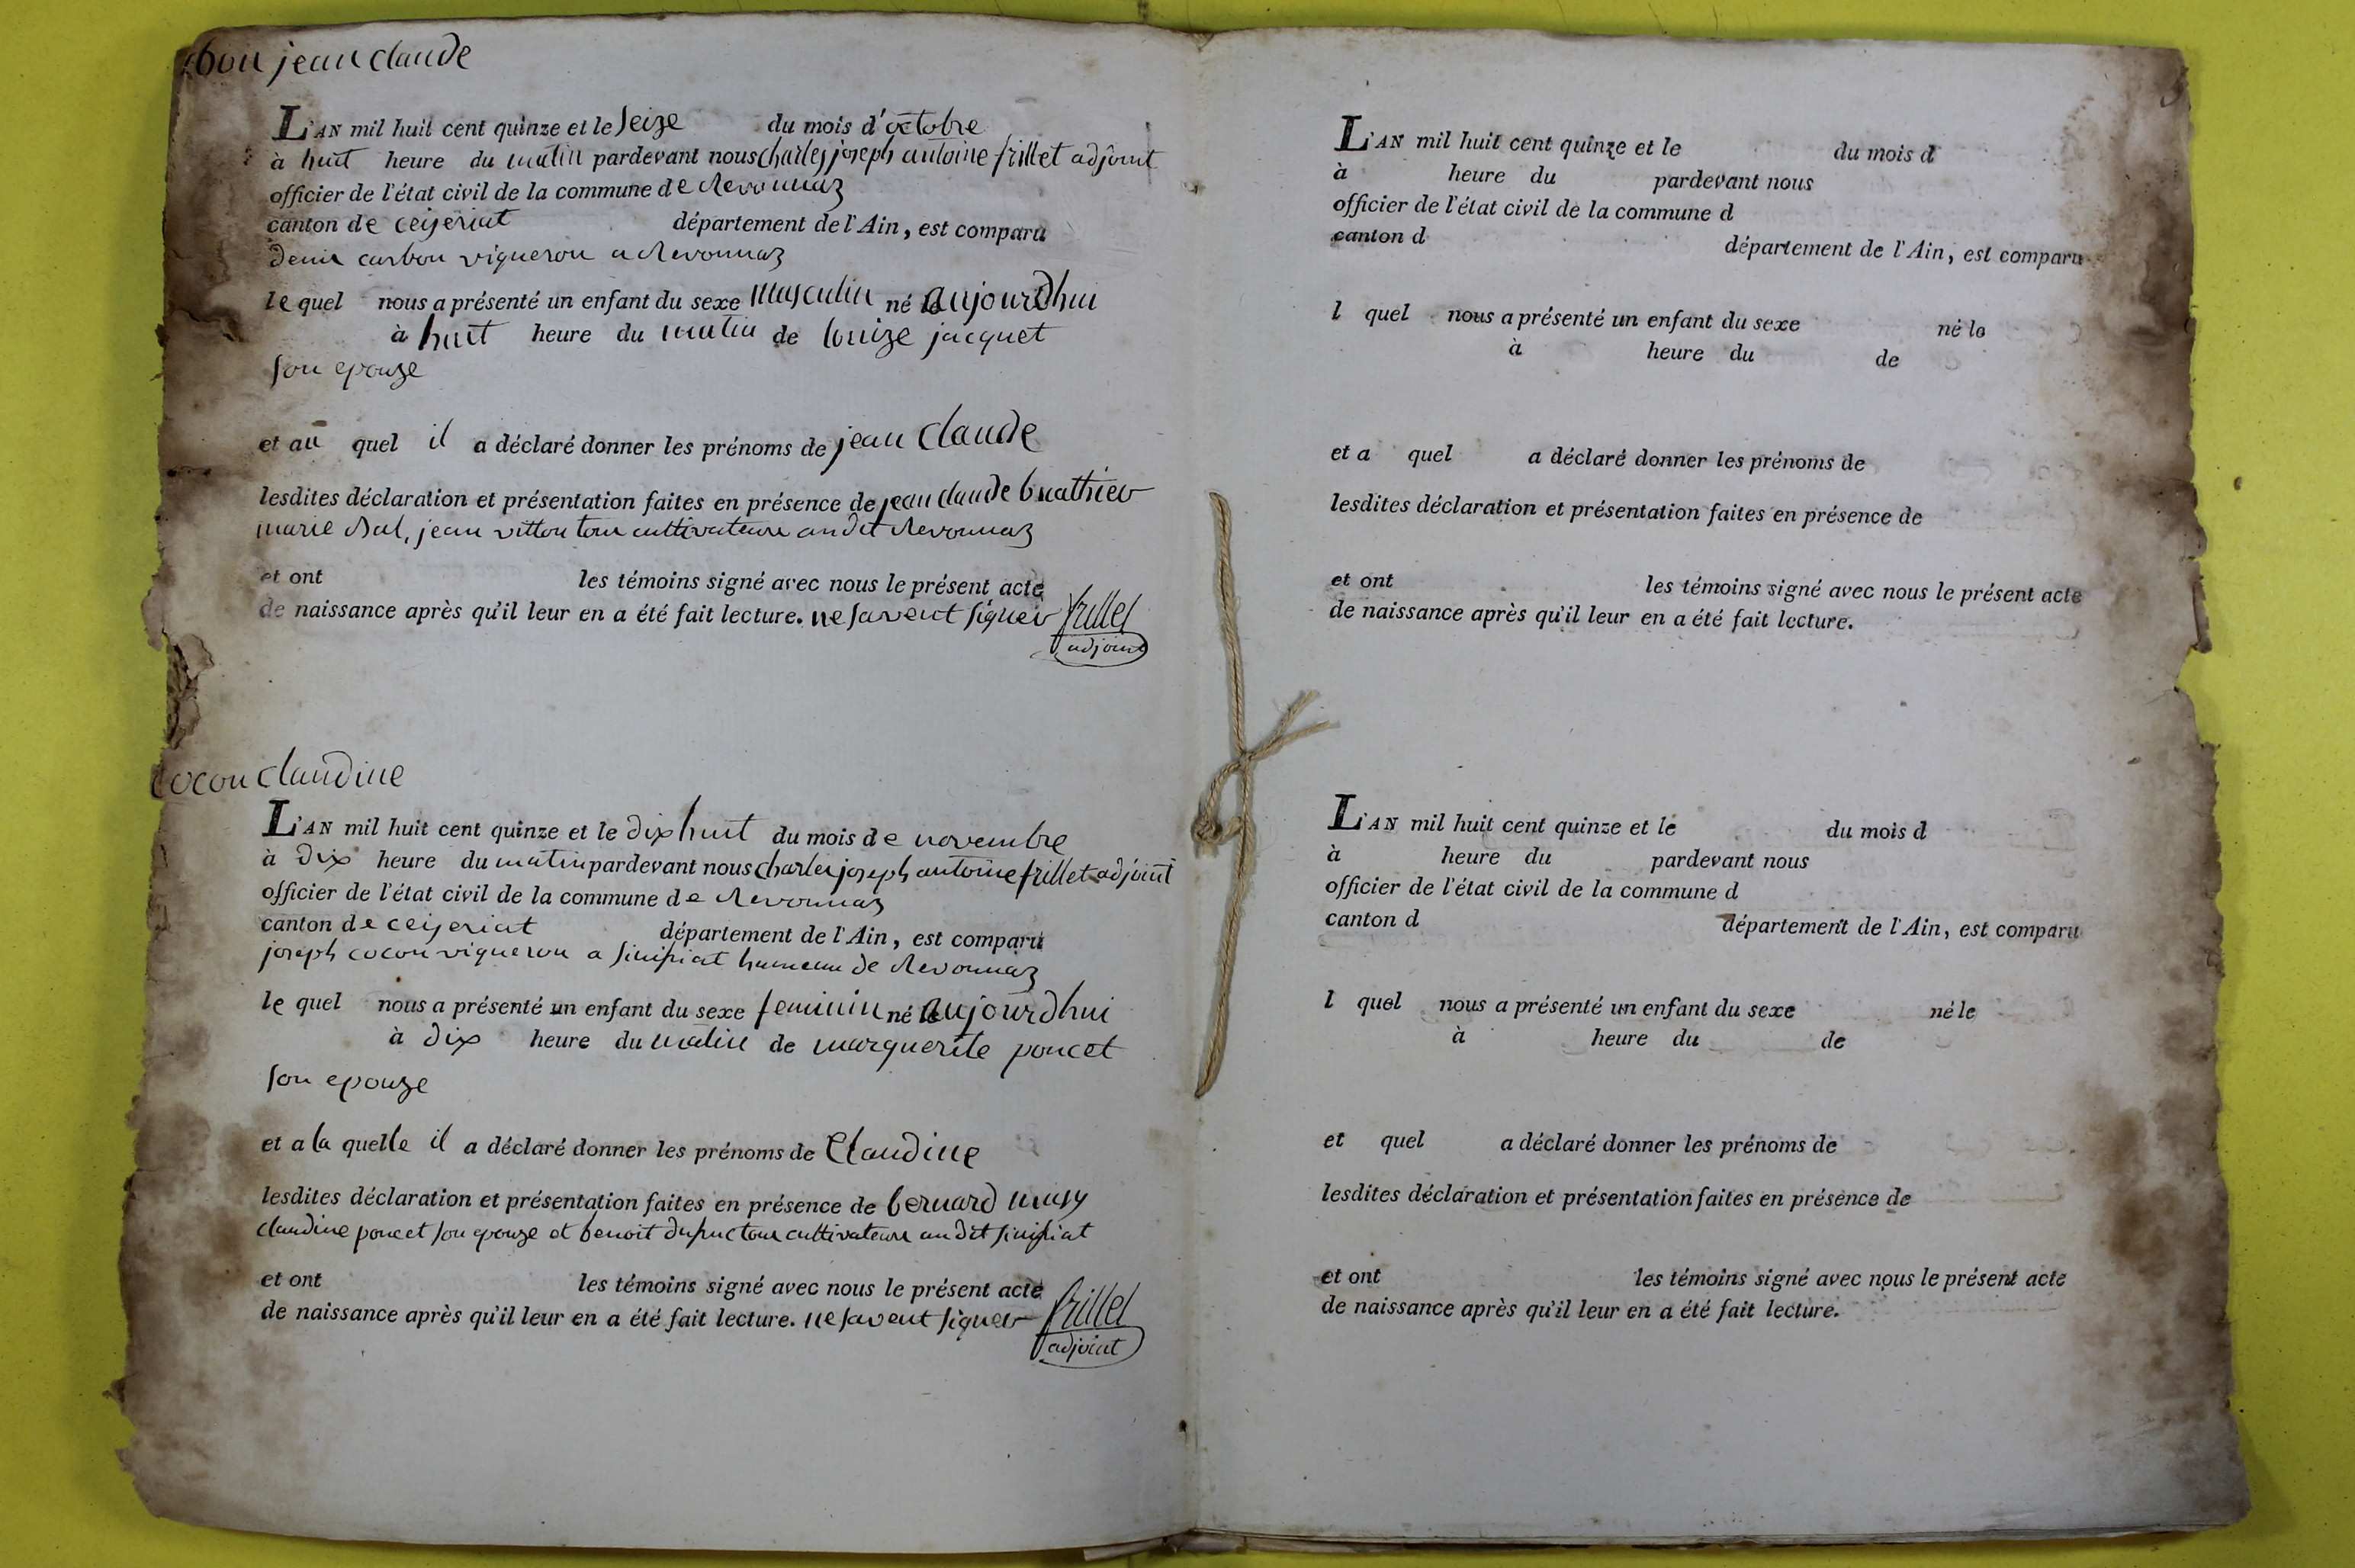 bon jean claude
L'AN mil huit cent quinze et le seize du mois d'octobre
à huit heure du matin pardevant nous charles joseph antoine frillet adjoint
officier de l'état civil de la commune de revonnaz
canton de ceijeriat département de l'Ain, est comparu
denis carbon vigneron a revonnaz
le quel nous a présenté un enfant du sexe masculin né le aujourdhui
à huit heure du matin de louize jacquet
son epouze
et au quel il a déclaré donner les prénoms de jean claude
lesdites déclaration et présentation faites en présence de jean claude buathier
marie , jean vitton tous cultivateurs audit revonnaz
et ont les témoins signé avec nous le présent acte
de naissance après qu'il leur en a été fait lecture. ne savent signer frillet
adjoint
cocon claudine
L'AN mil huit cent quinze et le dix huit du mois de novembre
à dix heure du matin pardevant nous charles joseph antoine frillet adjoint
officier de l'état civil de la commune de revonnaz
canton de ceijeriat département de l'Ain, est comparu
joseph cocon vigneron a hameau de revonnaz
le quel nous a présenté un enfant du sexe feminin né le aujourdhui
à dix heure du matin de marguerite poncet
son epouze
et a la quelle il a déclaré donner les prénoms de Claudine
lesdites déclaration et présentation faites en présence de bernard
claudine poncet son epouze et benoit dupuc tous cultivateurs audit
et ont les témoins signé avec nous le présent acte
de naissance après qu'il leur en a été fait lecture. ne savent signer frillet
adjoint
L'AN mil huit cent quinze et le du mois d
à heure du pardevant nous
officier de l'état civil de la commune d
canton d département de l'Ain, est comparu
l quel nous a présenté un enfant du sexe né le
à heure du de
et a quel a déclaré donner les prénoms de
lesdites déclaration et présentation faites en présence de
et ont les témoins signé avec nous le présent acte
de naissance après qu'il leur en a été fait lecture.
L'AN mil huit cent quinze et le du mois d
à heure du pardevant nous
officier de l'état civil de la commune d
canton d département de l'Ain, est comparu
l quel nous a présenté un enfant du sexe né le
à heure du de
et quel a déclaré donner les prénoms de
lesdites déclaration et présentation faites en présence de
et ont les témoins signé avec nous le présent acte
de naissance après qu'il leur en a été fait lecture.